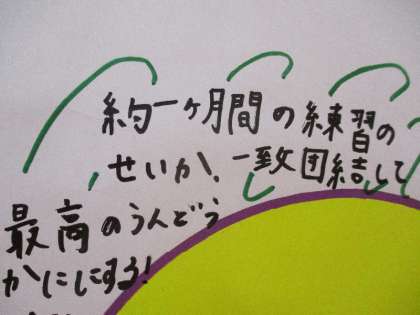 約一ヶ月間の練習の
せいか、一致団結して
最高のうんどう
かににする!